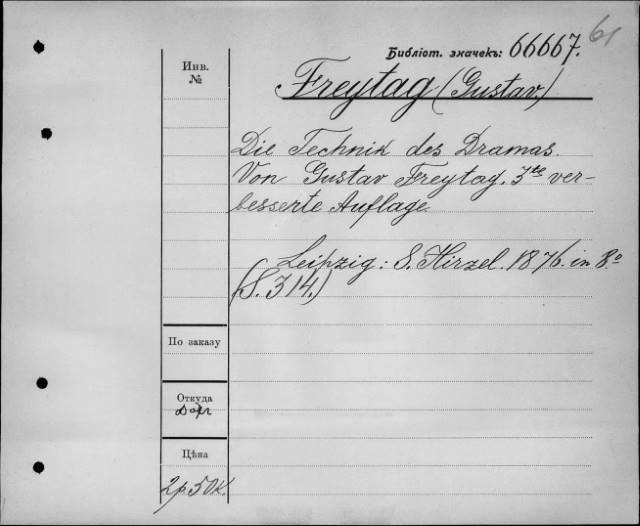 61
Библіот. значекъ: 66667.
Инв.
№
Freytag (Gustav.)
Die Technik des Dramas.
Von Gustav Freytag. 3te ver-
besserte Auflage.
Leipzig: S. Hirzel. 1876. in 8.º
(S. 314.)
По заказу
Откуда
Цѣна
2 р. 50 к.